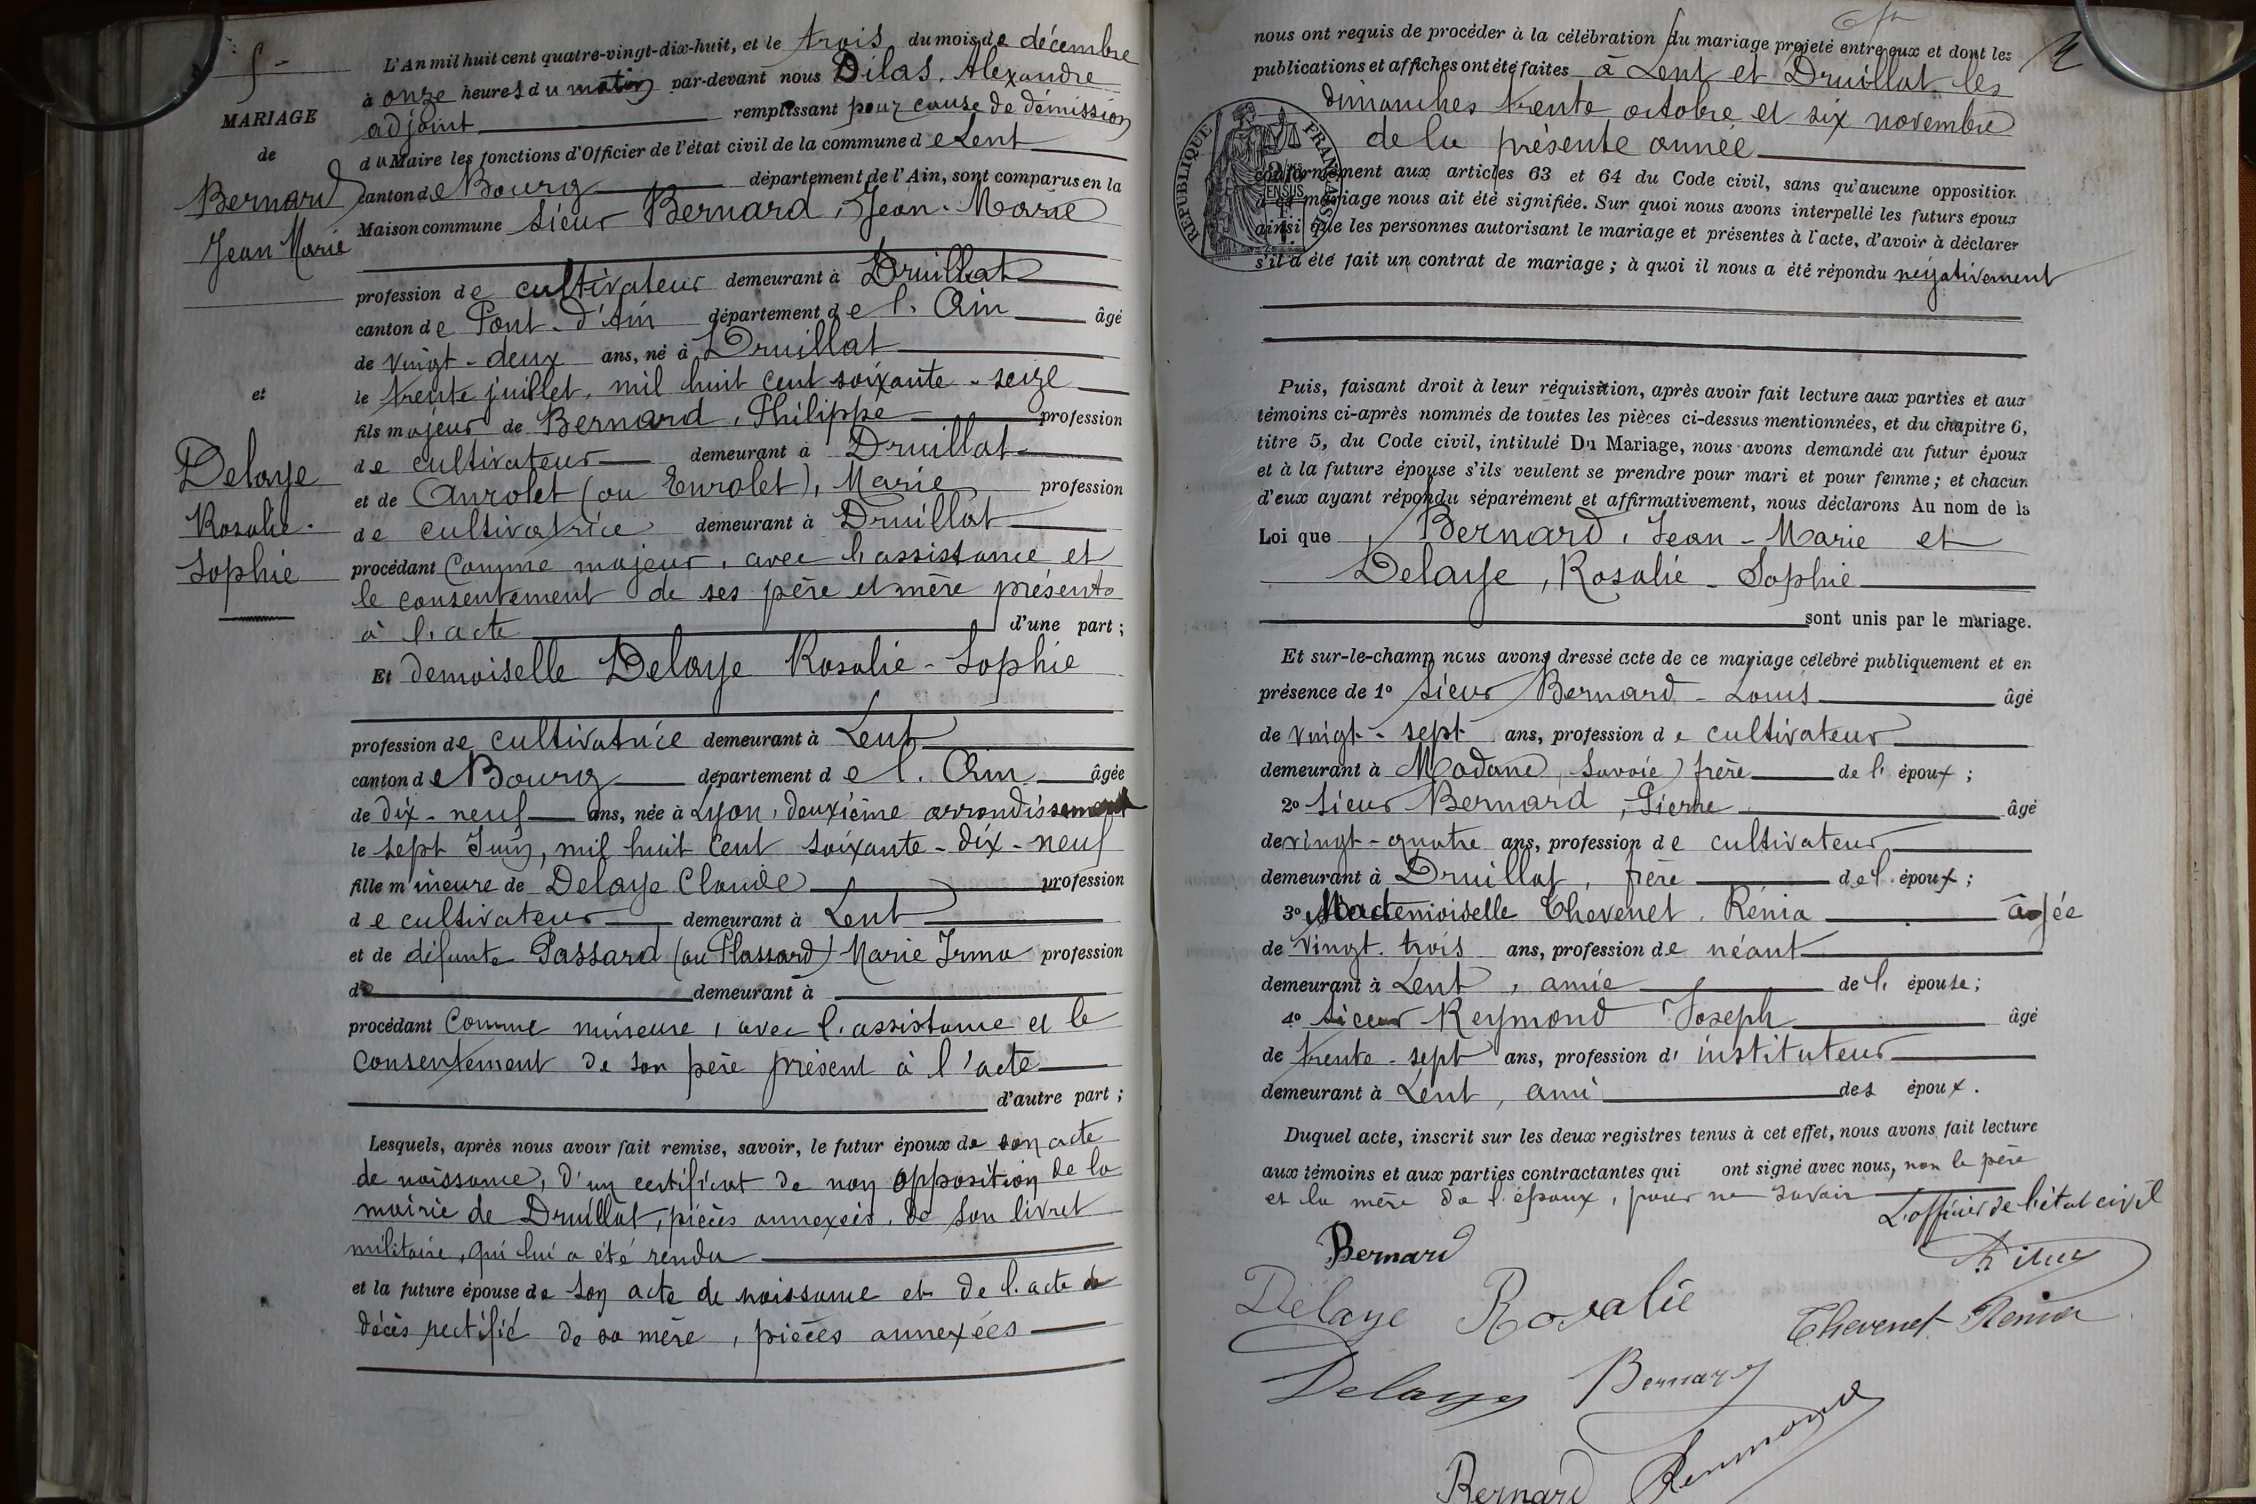 5
MARIAGE
de
Bernard
Jean Marie
et
Delaye
Rosalie
Sophie
L'An mil huit cent quatre-vingt-dix-huit, et le trois du mois de décembre
à onze heures du matin par-devant nous Dilas, Alexandre
adjoint remplissant pour cause de démission
du Maire les fonctions d'Officier de l'état civil de la commune de Lent
canton de Bourg département de l'Ain, sont comparus en la
Maison commune sieur Bernard, Jean-Marie
profession de cultivateur demeurant à Druillat
canton de Pont-d'Ain département de l'Ain âgé
de vingt-deux ans, né à Druillat
le trente juillet, mil huit cent soixante-seize
fils majeur de Bernard, Philippe profession
de cultivateur demeurant à Druillat
et de Aurolet (ou Eurolet), Marie profession
de cultivatrice demeurant à Druillat
procédant comme majeur, avec l'assistance et
le consentement de ses père et mère présents
à l'acte d'une part;
Et demoiselle Delaye Rosalie-Sophie
profession de cultivatrice demeurant à Lent
canton de Bourg département de l'Ain âgée
de dix-neuf ans, née à Lyon, deuxième arrondissement
le sept Juin, mil huit cent soixante-dix-neuf
fille mineure de Delaye Claude profession
de cultivateur demeurant à Lent
et de défunte Passard (ou Plassard) Marie Irma profession
de demeurant à
procédant comme mineure, avec l'assistance et le
consentement de son père présent à l'acte
d'autre part;
Lesquels, après nous avoir fait remise, savoir, le futur époux de son acte
de naissance, d'un certificat de non opposition de la
mairie de Druillat, pièces annexées, de son livret
militaire, qui lui a été rendu
et la future épouse de son acte de naissance et de l'acte de
décès rectifié de sa mère, pièces annexées
nous ont requis de procéder à la célébration du mariage projeté entre eux et dont les
publications et affiches ont été faites à Lent et Druillat les
dimanches trente octobre et six novembre
de la présente année
RÉPUBLIQUE FRANÇAISE
conformément aux articles 63 et 64 du Code civil, sans qu'aucune opposition
à ce mariage nous ait été signifiée. Sur quoi nous avons interpellé les futurs époux
ainsi que les personnes autorisant le mariage et présentes à l'acte, d'avoir à déclarer
s'il a été fait un contrat de mariage; à quoi il nous a été répondu négativement
Puis, faisant droit à leur réquisition, après avoir fait lecture aux parties et aux
témoins ci-après nommés de toutes les pièces ci-dessus mentionnées, et du chapitre 6,
titre 5, du Code civil, intitulé Du Mariage, nous avons demandé au futur époux
et à la future épouse s'ils veulent se prendre pour mari et pour femme; et chacun
d'eux ayant répondu séparément et affirmativement, nous déclarons Au nom de la
Loi que Bernard, Jean-Marie et
Delaye, Rosalie-Sophie
sont unis par le mariage.
Et sur-le-champ nous avons dressé acte de ce mariage célébré publiquement et en
présence de 1° sieur Bernard-Louis âgé
de vingt-sept ans, profession de cultivateur
demeurant à Modane, Savoie) frère de l'époux;
2° sieur Bernard, Pierre âgé
de vingt-quatre ans, profession de cultivateur
demeurant à Druillat, frère de l'époux;
3° Mademoiselle Thevenet, Rénia âgée
de vingt-trois ans, profession de néant
demeurant à Lent, amie de l'épouse;
4° sieur Reymond Joseph âgé
de trente-sept ans, profession d'instituteur
demeurant à Lent, ami des époux.
Duquel acte, inscrit sur les deux registres tenus à cet effet, nous avons fait lecture
aux témoins et aux parties contractantes qui ont signé avec nous, non le père
et la mère de l'époux, pour ne savoir
L'officier de l'état civil
Bernard
Dilas
Delaye Rosalie
Thevenet Rénia
Delaye Bernard
Bernard Reymond